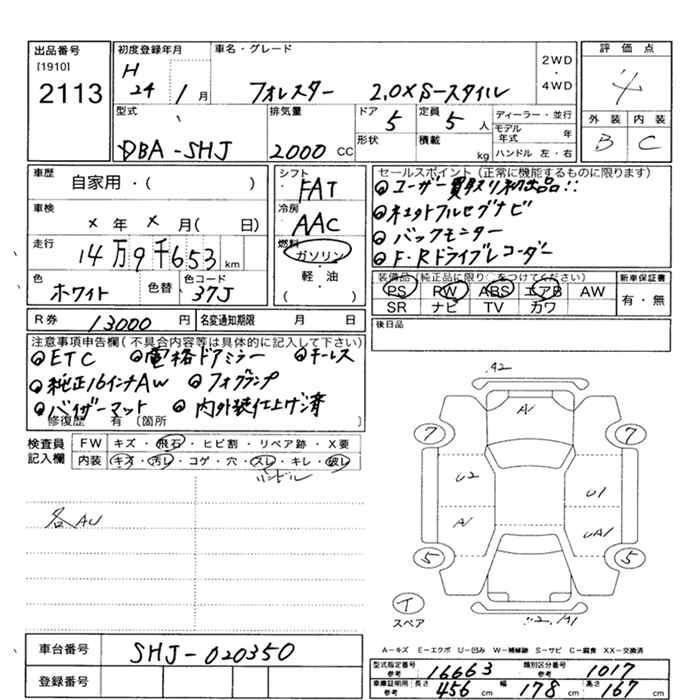 出品番号
[1910]
2113
初度登録年月
H 24 1月
車名・グレード
フォレスター 2.0XSースタイル
2WD
・
4WD
評価点
4
外装 内装
B C
型式
DBA-SHJ
排気量
2000 CC
ドア 5
形状
定員 5 人
積載 kg
ディーラー・並行
モデル年式 年
ハンドル 左・右
車歴
自家用・( )
車検
× 年 × 月( 日)
走行
14万9千653 km
色
ホワイト
色替
色コード
37J
シフト
FAT
冷房
AAC
燃料
ガソリン
・
軽・油
( )
セールスポイント(正常に機能するものに限ります)
ユーザー買取り初出品!!
キュットフルセグナビ
バックモニター
F・Rドライブレコーダー
装備品(純正品に限り○をつけてください)
PS RW ABS エアB AW
SR ナビ TV カワ
新車保証書
有・無
後日品
R券 13000 円
名変通知期限 月 日
注意事項申告欄(不具合内容等は具体的に記入して下さい)
ETC 電格ドアミラー キーレス
純正16インチAW フォグランプ
バイザーマット 内外装仕上げ済
修復歴 有 〔箇所 〕
検査員記入欄
FW キズ・飛石・ヒビ割・リペア跡・X要
内装 キズ・汚レ・コゲ・穴・スレ・キレ・破レ
ハンドル
各AU
.42
A1
7 7
U2 U1
A1 UA1
5 5
イ
スペア
U2.A1
A-キズ E-エクボ U-凹み W-補修跡 S-サビ C-腐食 XX-交換済
車台番号
SHJ-020350
登録番号
型式指定番号 参考 16663
類別区分番号 参考 1017
車庫証明用 参考 長さ 456 cm 幅 178 cm 高さ 167 cm